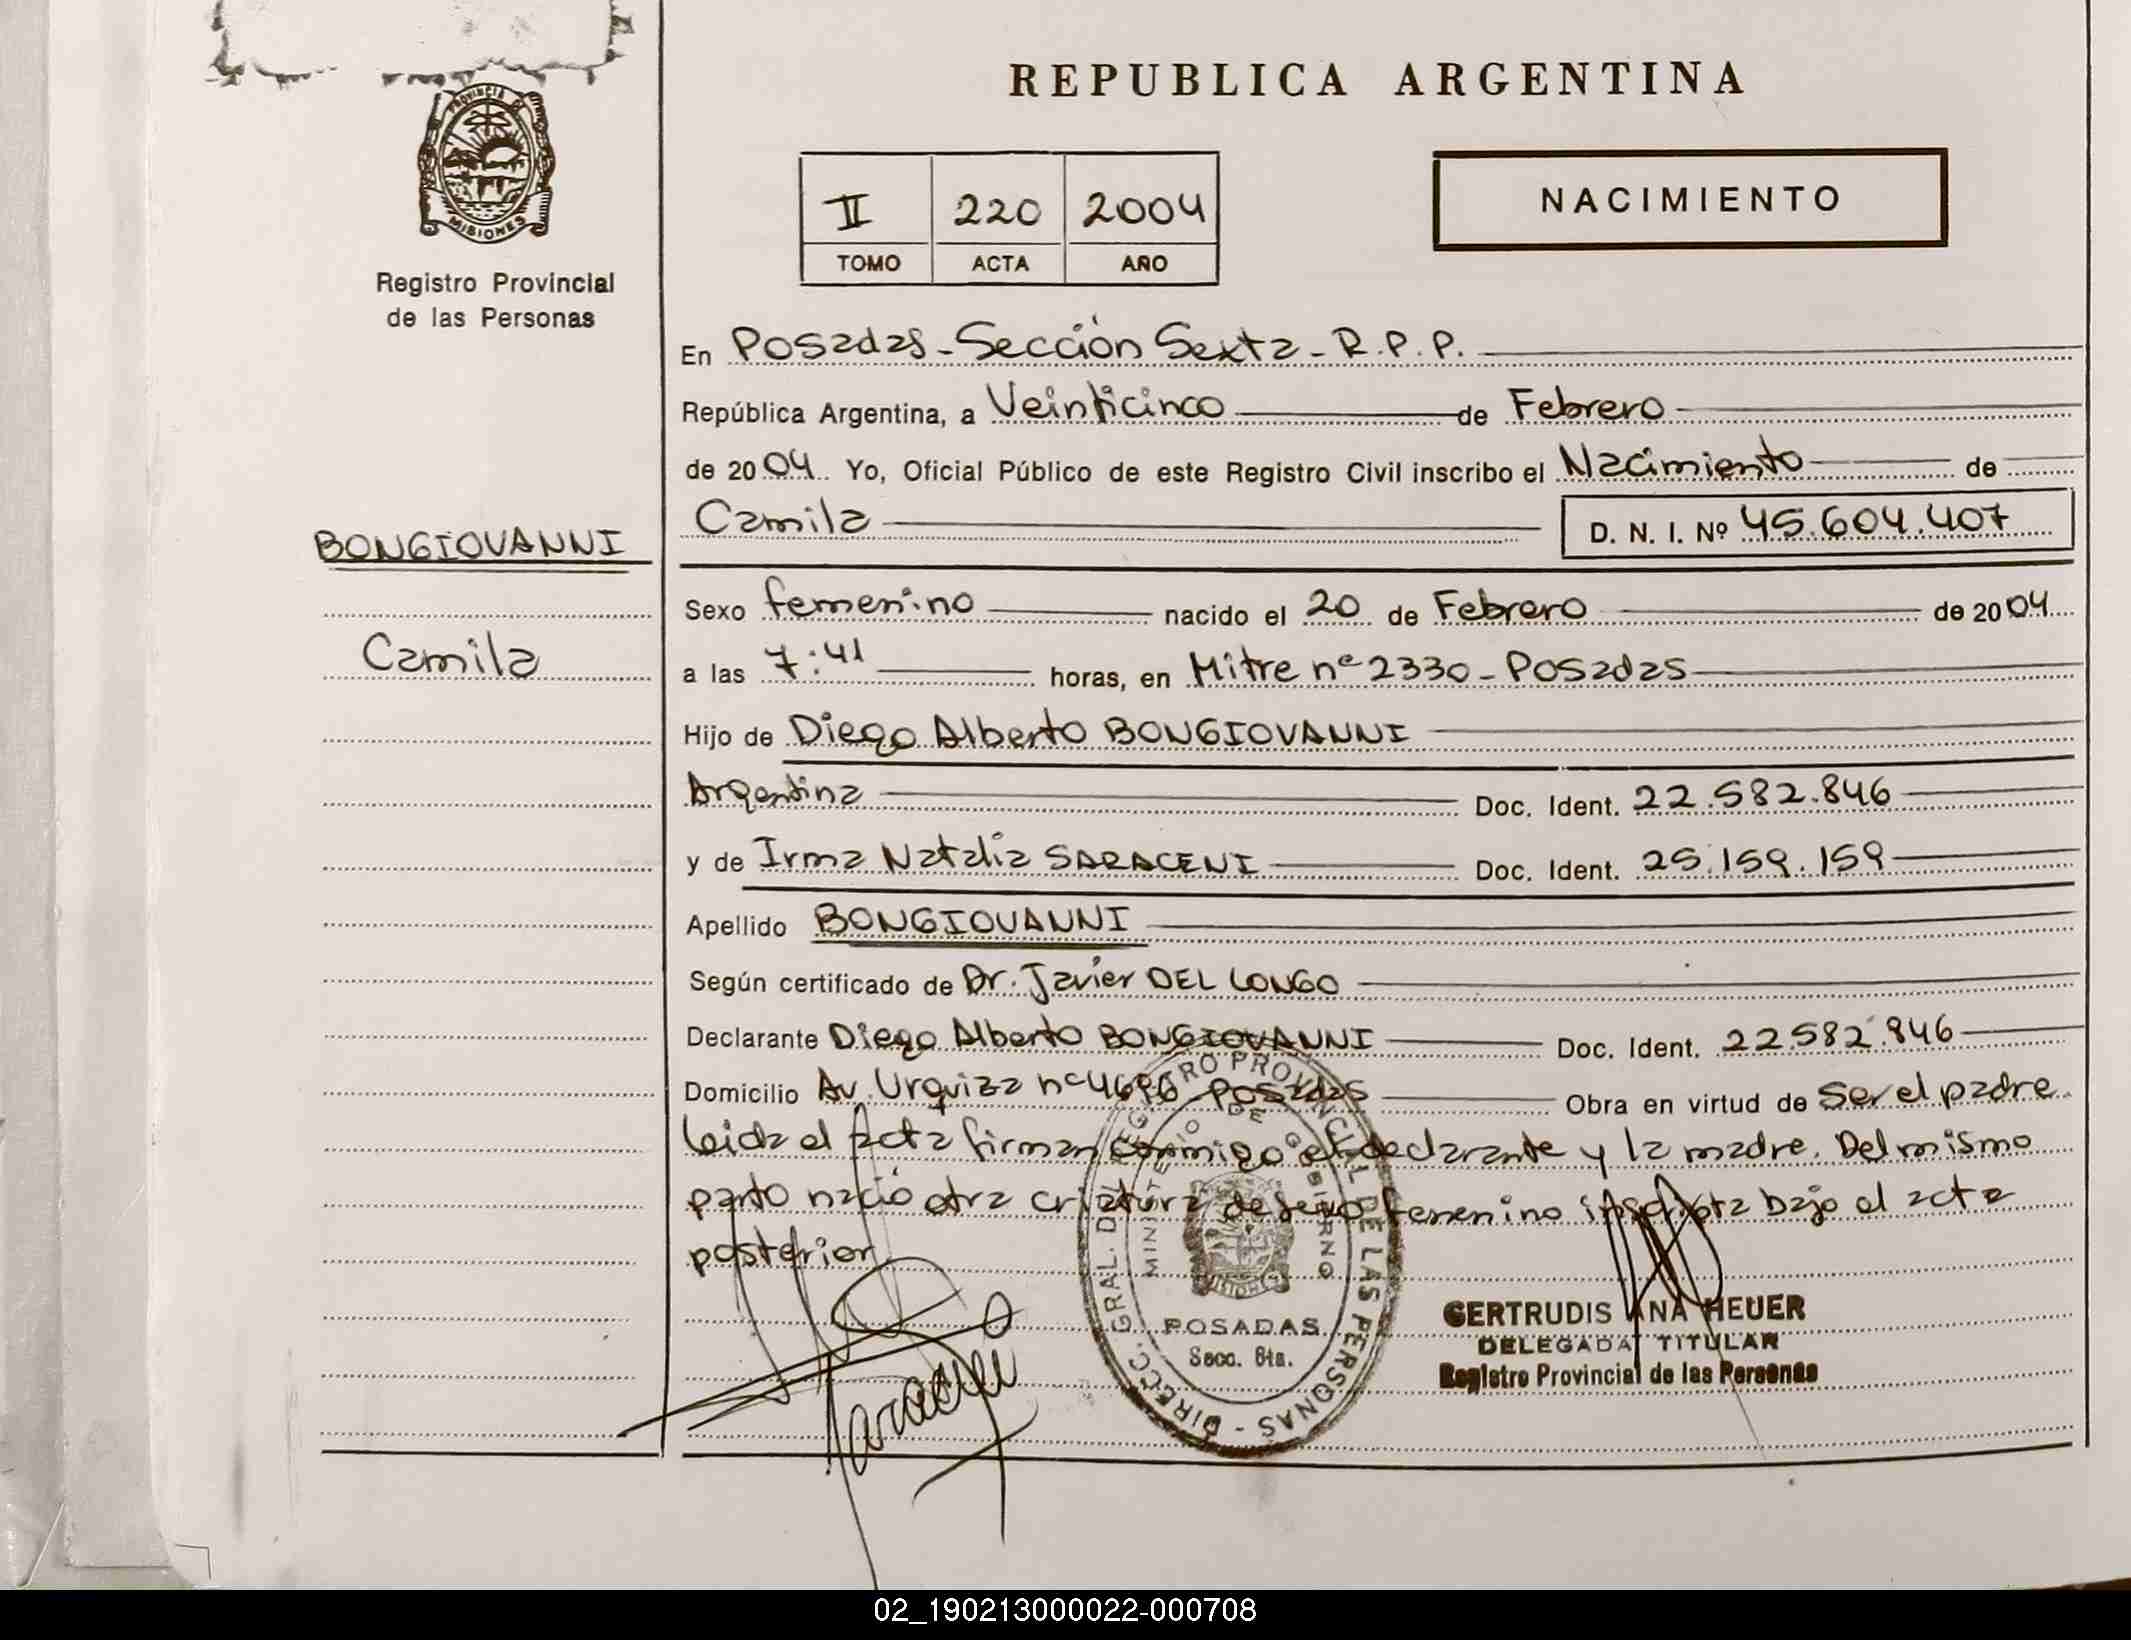 PROVINCIA DE
MISIONES
Registro Provincial
de las Personas
BONGIOVANNI
Camila
REPUBLICA ARGENTINA
II 220 2004
TOMO ACTA AÑO
NACIMIENTO
En Posadas - Sección Sexta - R.P.P.
República Argentina, a Veinticinco de Febrero
de 2004 Yo, Oficial Público de este Registro Civil inscribo el Nacimiento de
Camila D. N. I. Nº 45.604.407
Sexo femenino nacido el 20 de Febrero de 2004
a las 7:41 horas, en Mitre nº 2330 - Posadas
Hijo de Diego Alberto BONGIOVANNI
Argentina Doc. Ident. 22.582.846
y de Irma Natalia SARACENI Doc. Ident. 25.159.159
Apellido BONGIOVANNI
Según certificado de Dr. Javier DEL LONGO
Declarante Diego Alberto BONGIOVANNI Doc. Ident. 22.582.846
Domicilio Av. Urquiza nº Posadas Obra en virtud de Ser el padre.
Leida el acta firman conmigo el declarante y la madre. Del mismo
parto nació otra criatura de sexo femenino inscripta bajo el acta
posterior
DIRECC. GRAL. DEL REGISTRO PROVINCIAL DE LAS PERSONAS -
MINISTERIO DE GOBIERNO
POSADAS
Secc. 6ta.
GERTRUDIS ANA HEUER
DELEGADA TITULAR
Registro Provincial de las Personas
Saraceni
02_190213000022-000708